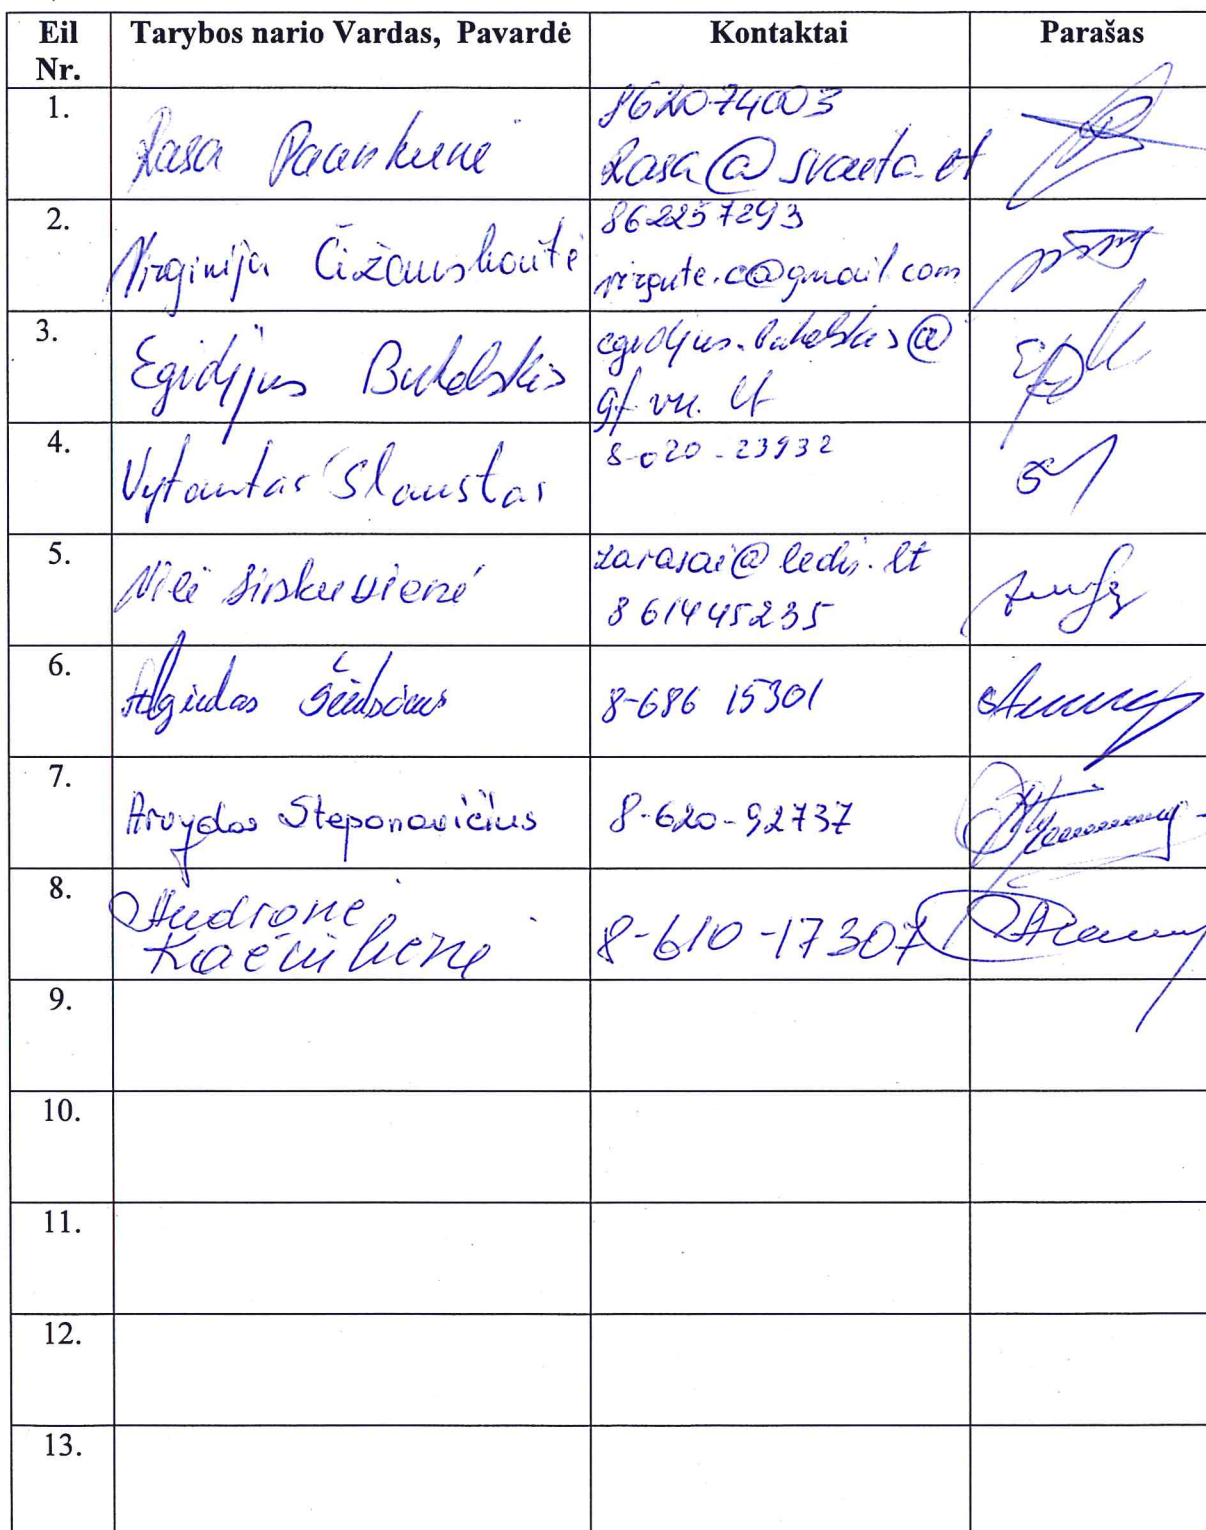 Eil Nr. Tarybos nario Vardas, Pavardė Kontaktai Parašas
1. Rasa 862074003
Rasa@svaeta.lt
2. Virginija Čižauskaitė 862257293
virgute.c@gmail.com
3. Egidijus Bukelskis egidijus.bukelskis@
gf.vu.lt
4. Vytautas Slaustas 8-620-23932
5. zarasai@ledis.lt
861445235
6. Algirdas 8-686 15301
7. Arvydas Steponavičius 8-620-92737
8. Audronė 8-610-17307
9.
10.
11.
12.
13.